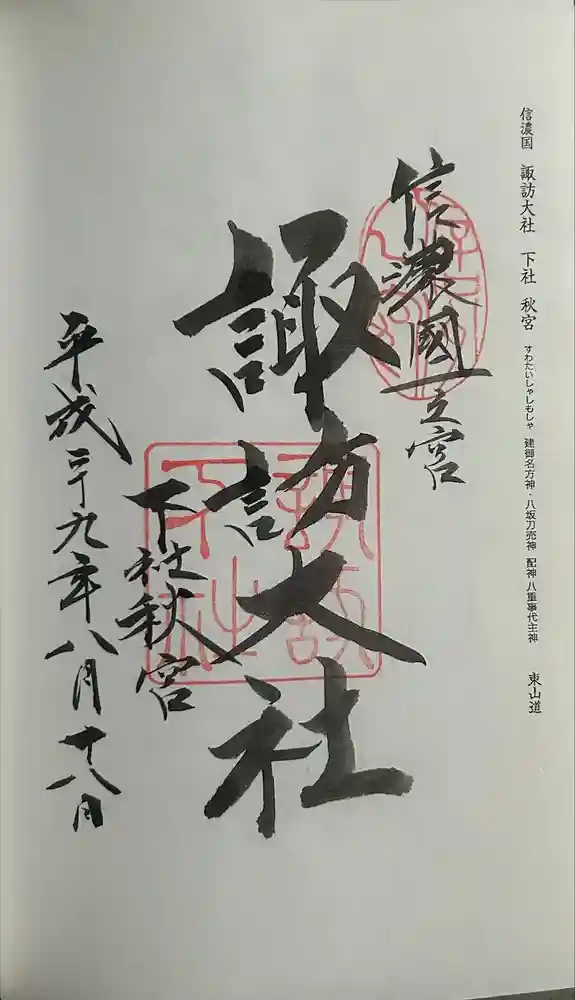 信濃国 諏訪大社 下社 秋宮 すわたいしゃしもしゃ 建御名方神・八坂刀売神 配神 八重事代主神 東山道
信濃國一之宮
諏訪大社
下社秋宮
平成二十九年八月十八日
諏訪下社